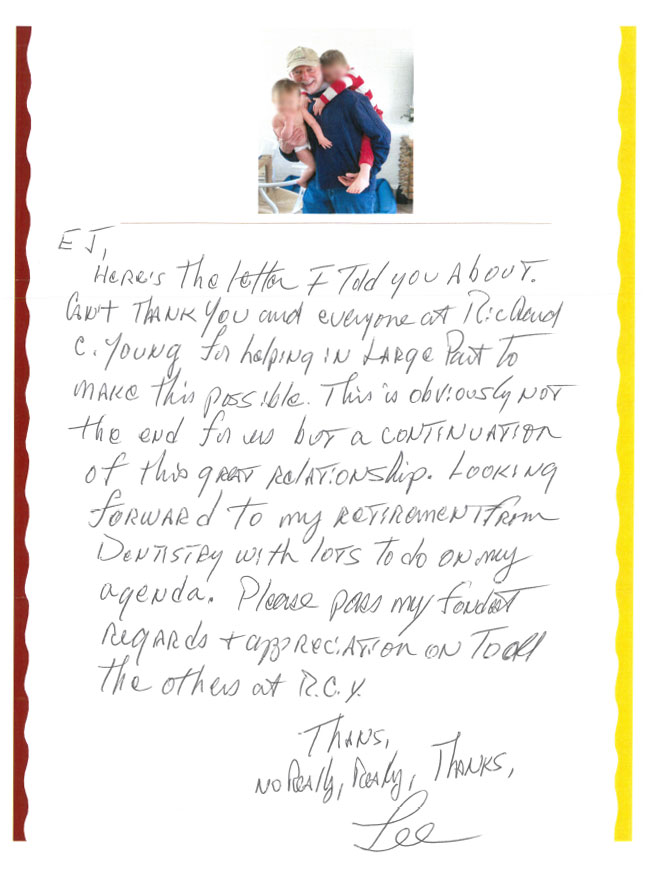 EJ,
Here's the letter I Told you About.
Can't THANK You and everyone at Richard
C. Young for helping in Large Part to
make this possible. This is obviously not
the end for us but a continuation
of this great relationship. Looking
forward to my retirement from
Dentistry with lots to do on my
agenda. Please pass my fondest
regards + appreciation on To all
the others at R.C.Y.
Thans,
no Really, Really, Thanks,
Lee